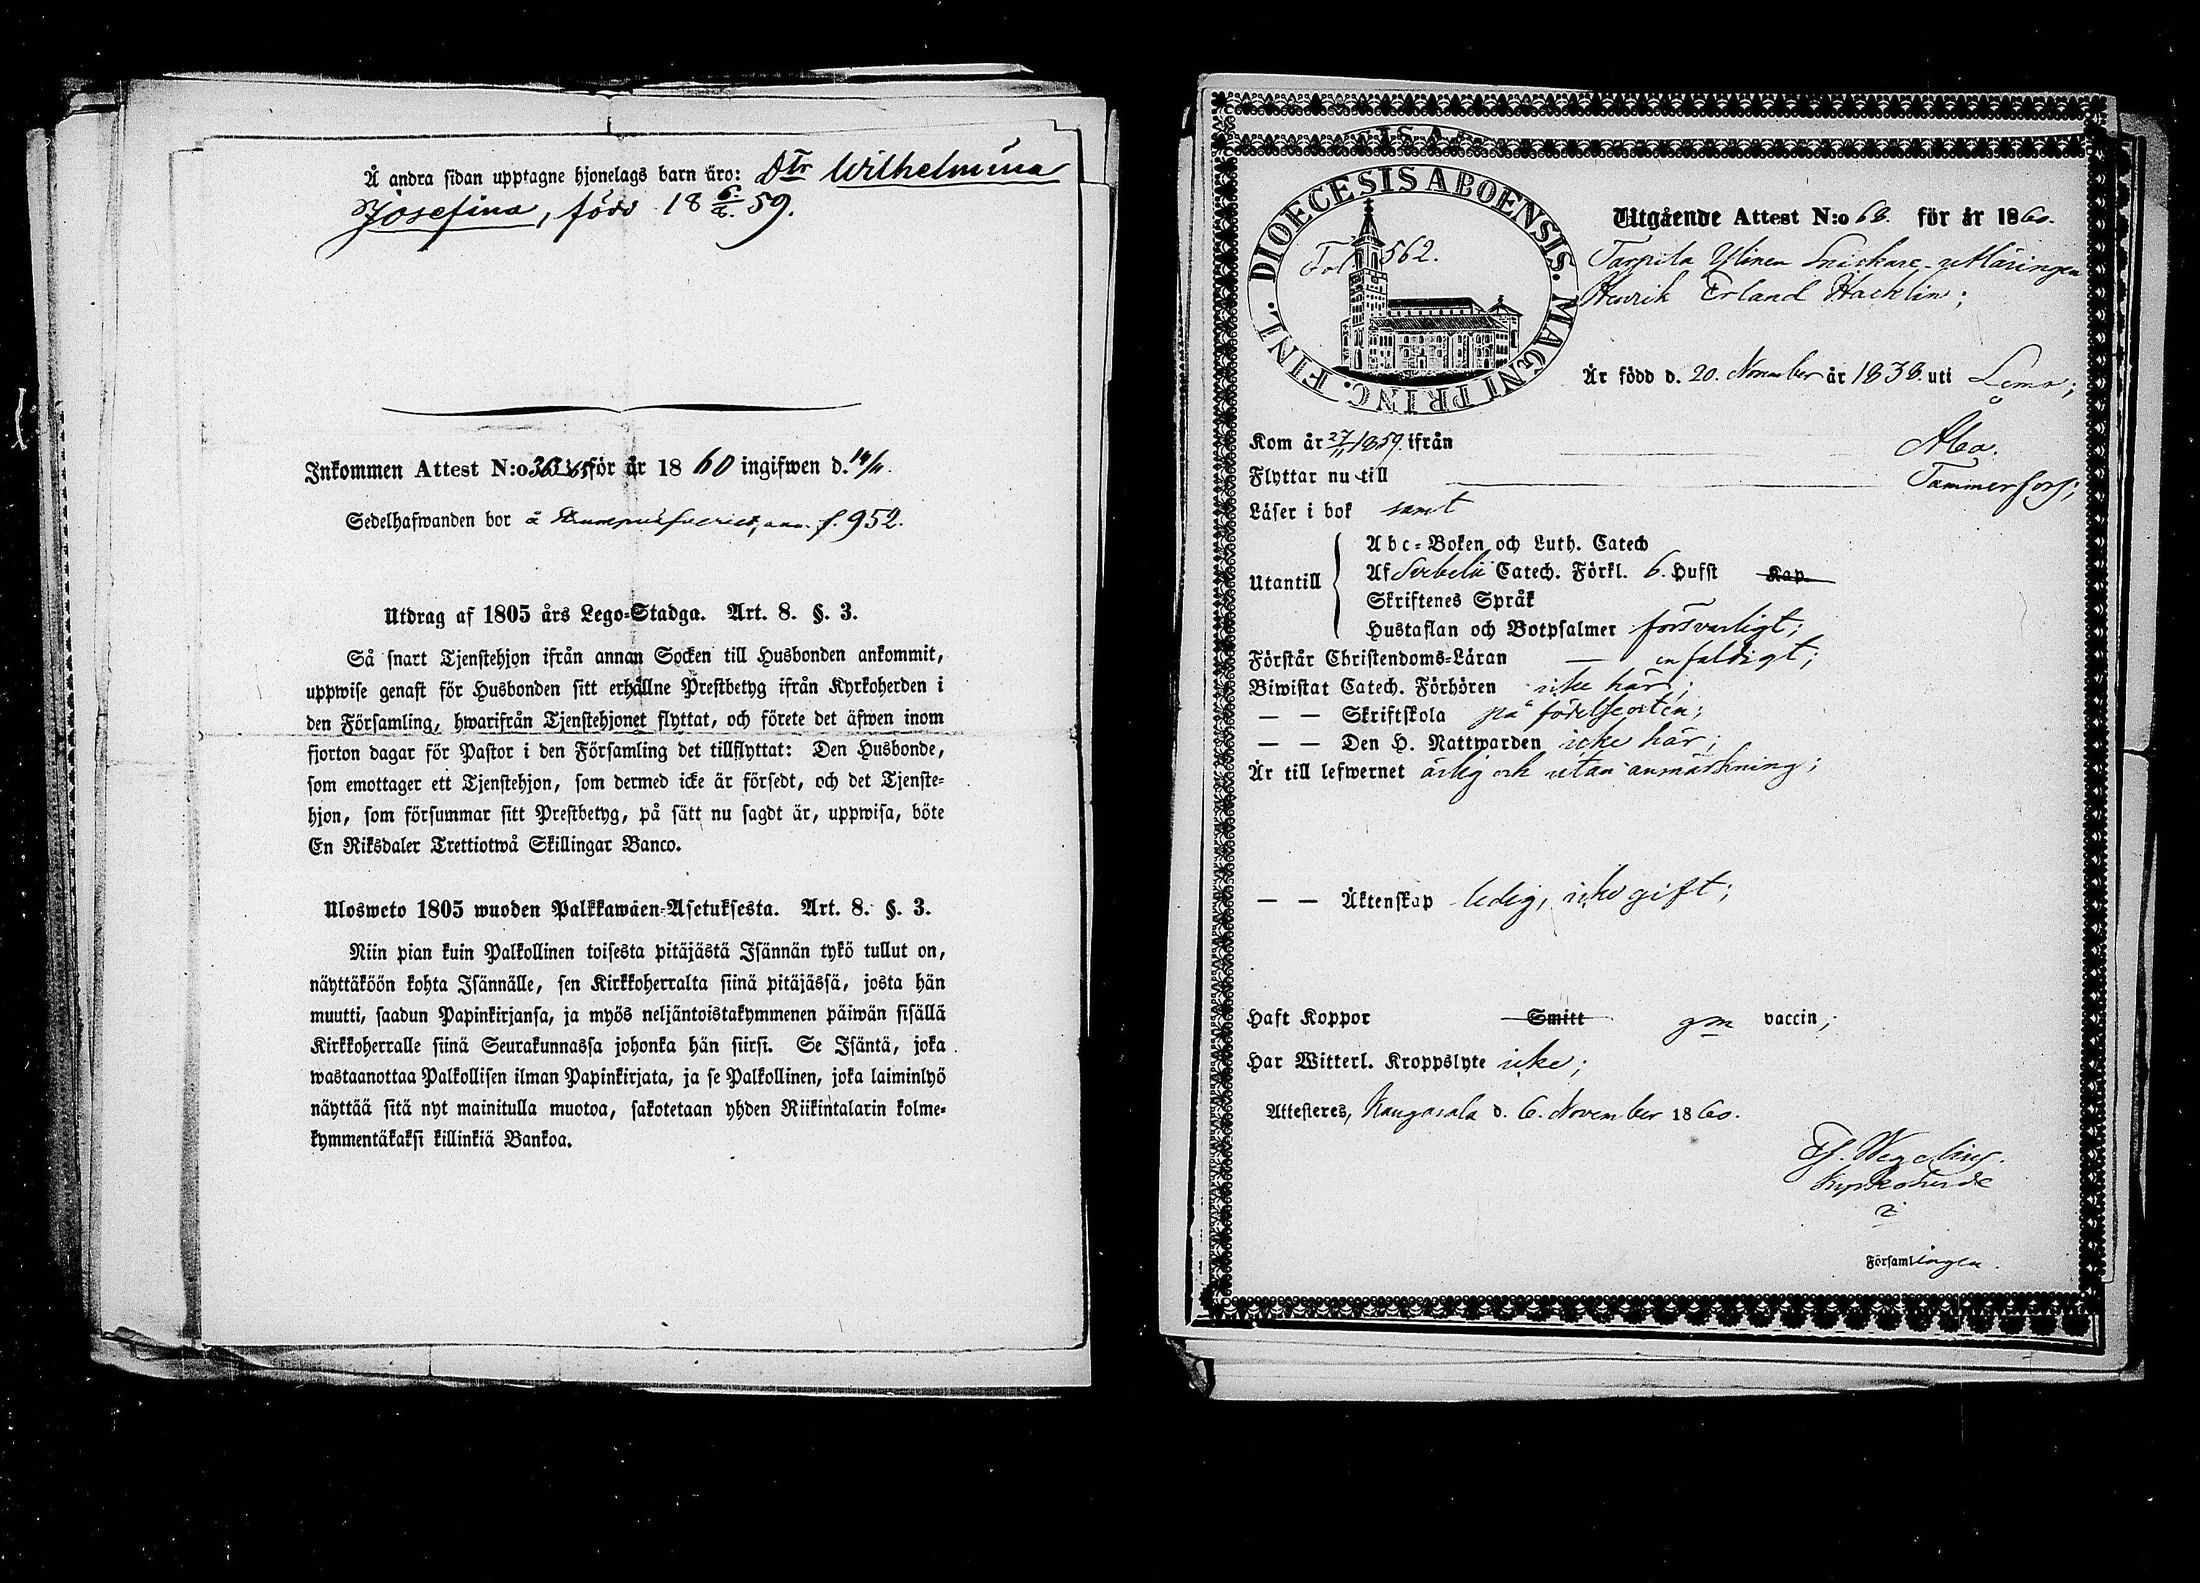 Å andra sidan upptagne hjonelags barn äro: Dtr Wilhelmina
Josefina, född 18 6/2. 59.
Inkommen Attest N:o för år 1860 ingifwen d. 14/11.
Sedelhafwanden bor å f. 952.
Utdrag af 1805 års Lego-Stadga. Art. 8. §. 3.
Så snart Tjenstehjon ifrån annan Socken till Husbonden ankommit,
uppwise genast för Husbonden sitt erhållne Prestbetyg ifrån Kyrkoherden i
den Församling, hwarifrån Tjenstehjonet flyttat, och förete det äfwen inom
fjorton dagar för Pastor i den Församling det tillflyttat: Den Husbonde,
som emottager ett Tjenstehjon, som dermed icke är försedt, och det Tjenste-
hjon, som försummar sitt Prestbetyg, på sätt nu sagdt är, uppwisa, böte
En Riksdaler Trettiotwå Skillingar Banco.
Ulosweto 1805 wuoden Palkkawäen-Asetuksesta. Art. 8. §. 3.
Niin pian kuin Palkollinen toisesta pitäjästä Isännän tykö tullut on,
näyttäköön kohta Isännälle, sen Kirkkoherralta siinä pitäjässä, josta hän
muutti, saadun Papinkirjansa, ja myös neljäntoistakymmenen päiwän sisällä
Kirkkoherralle siinä Seurakunnassa johonka hän siirsi. Se Isäntä, joka
wastaanottaa Palkollisen ilman Papinkirjata, ja se Palkollinen, joka laiminlyö
näyttää sitä nyt mainitulla muotoa, sakotetaan yhden Riikintalarin kolme-
kymmentäkaksi killinkiä Bankoa.
DIOECESIS ABOENSIS. MAGNI PRINC. FINL.
Fol. 562.
Utgående Attest N:o 68. för år 1860.
Tarpila Ylinen Snickare-utläringen
Henrik Erland Hacklin;
Är född d. 20. November år 1838. uti Lemo;
Kom år 27/11 1859. ifrån Åbo.
Flyttar nu till Tammerfors;
Läser i bok samt
Utantill
Abc-Boken och Luth. Catech
Af Svebelii Catech. Förkl. 6. Hufst Kap.
Skriftenes Språk
Hustaflan och Botpsalmer försvarligt;
Förstår Christendoms-Läran — enfaldigt;
Biwistat Catech. Förhören icke här;
— — Skriftskola på födelseorten;
— — Den H. Nattwarden icke här;
Är till lefwernet ärlig och utan anmärkning;
— — Äktenskap ledig, icke gift;
Haft Koppor Smitt gm vaccin;
Har Witterl. Kroppslyte icke;
Attesteres, Kangasala d. 6. November 1860.
Wegelius.
Kyrkoherde
i
Församlingen.